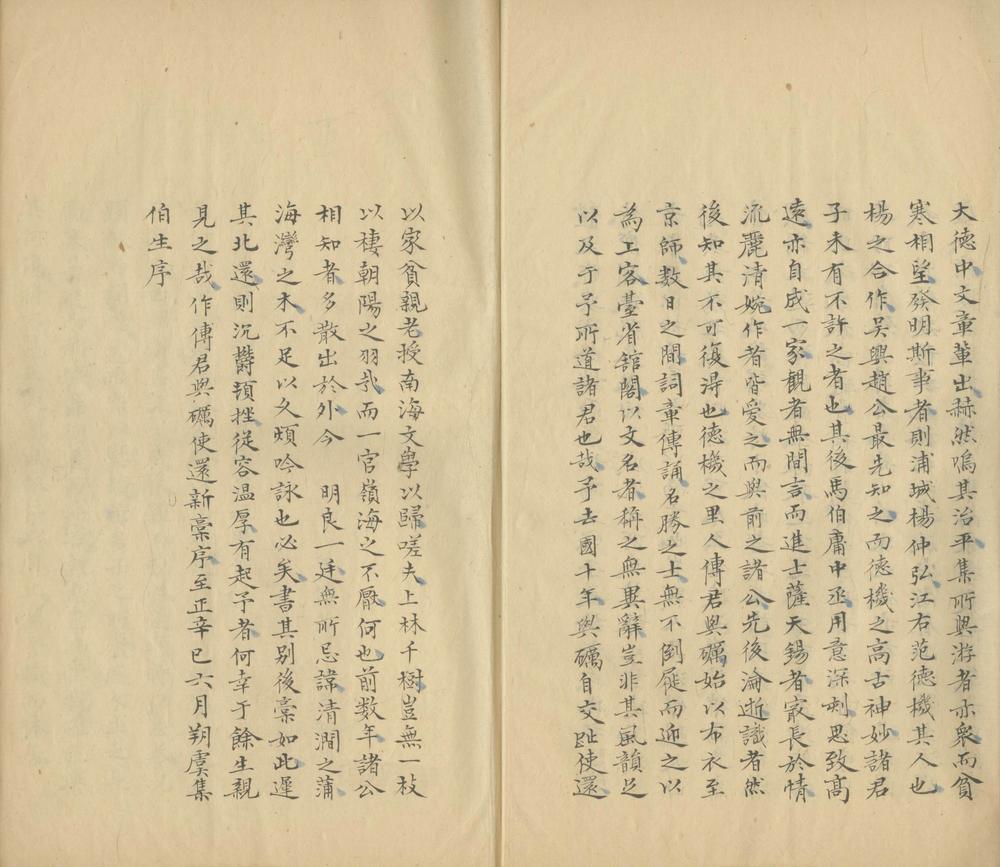 大德中文章輩出赫然鳴其治平集所與游者亦衆而貧
寒相望發明斯事者則浦城楊仲弘江右范德機其人也
楊之合作吴興趙公最先知之而德機之高古神妙諸君
子未有不許之者也其後馬伯庸中丞用意深刺思致髙
遠亦自成一家観者無間言而進士薩天錫者㝡長於情
流麗清婉作者皆愛之而與前之諸公先後淪逝識者然
後知其不可復淂也德機之里人傳君與礪始以布衣至
京師数日之間詞章傳誦名勝之士無不倒屣而迎之以
為上客臺省舘閣以文名者稱之無異辭豈非其風韻足
以及于予所道諸君也哉予去國十年與礪自交趾使還
以家貧親老授南海文學以歸嗟夫上林千樹豈無一枝
以棲朝陽之羽哉而一官嶺海之不厭何也前数年諸公
相知者多散出於外今 明良一廷無所忌諱清澗之蒲
海灣之木不足以久煩吟詠也必矣書其别後稾如此遲
其北還則沉欝頓挫從容温厚有起予者何幸于餘生親
見之哉作傳君與礪使還新稾序至正辛巳六月朔虞集
伯生序